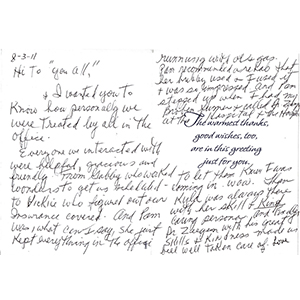 8-3-11
Hi To "you all,"
I wanted you to
Know how personally we
were treated by all in the
office.
Everyone we interacted with
were helpful, gracious and
friendly. From Gabby who worked
wonders to get us scheduled -
to Vickie who figured out our
insurance covered. And Pam
was, what can I say, she just
kept everything in the office
running without a gas.
Pam recommended a rehab that
her hubby used so I used it
& was so impressed. And Pam
stepped up when I had my
at the Hospital
The warmest thanks,
good wishes, too,
are in this greeting
just for you.
to let them know I was
coming in. wow. Then
Kyle was always there
with her skill & Kind
caring personality. And finally
Dr. Zaegam with his great
skills & Kindness made us
feel well taken care of. Love